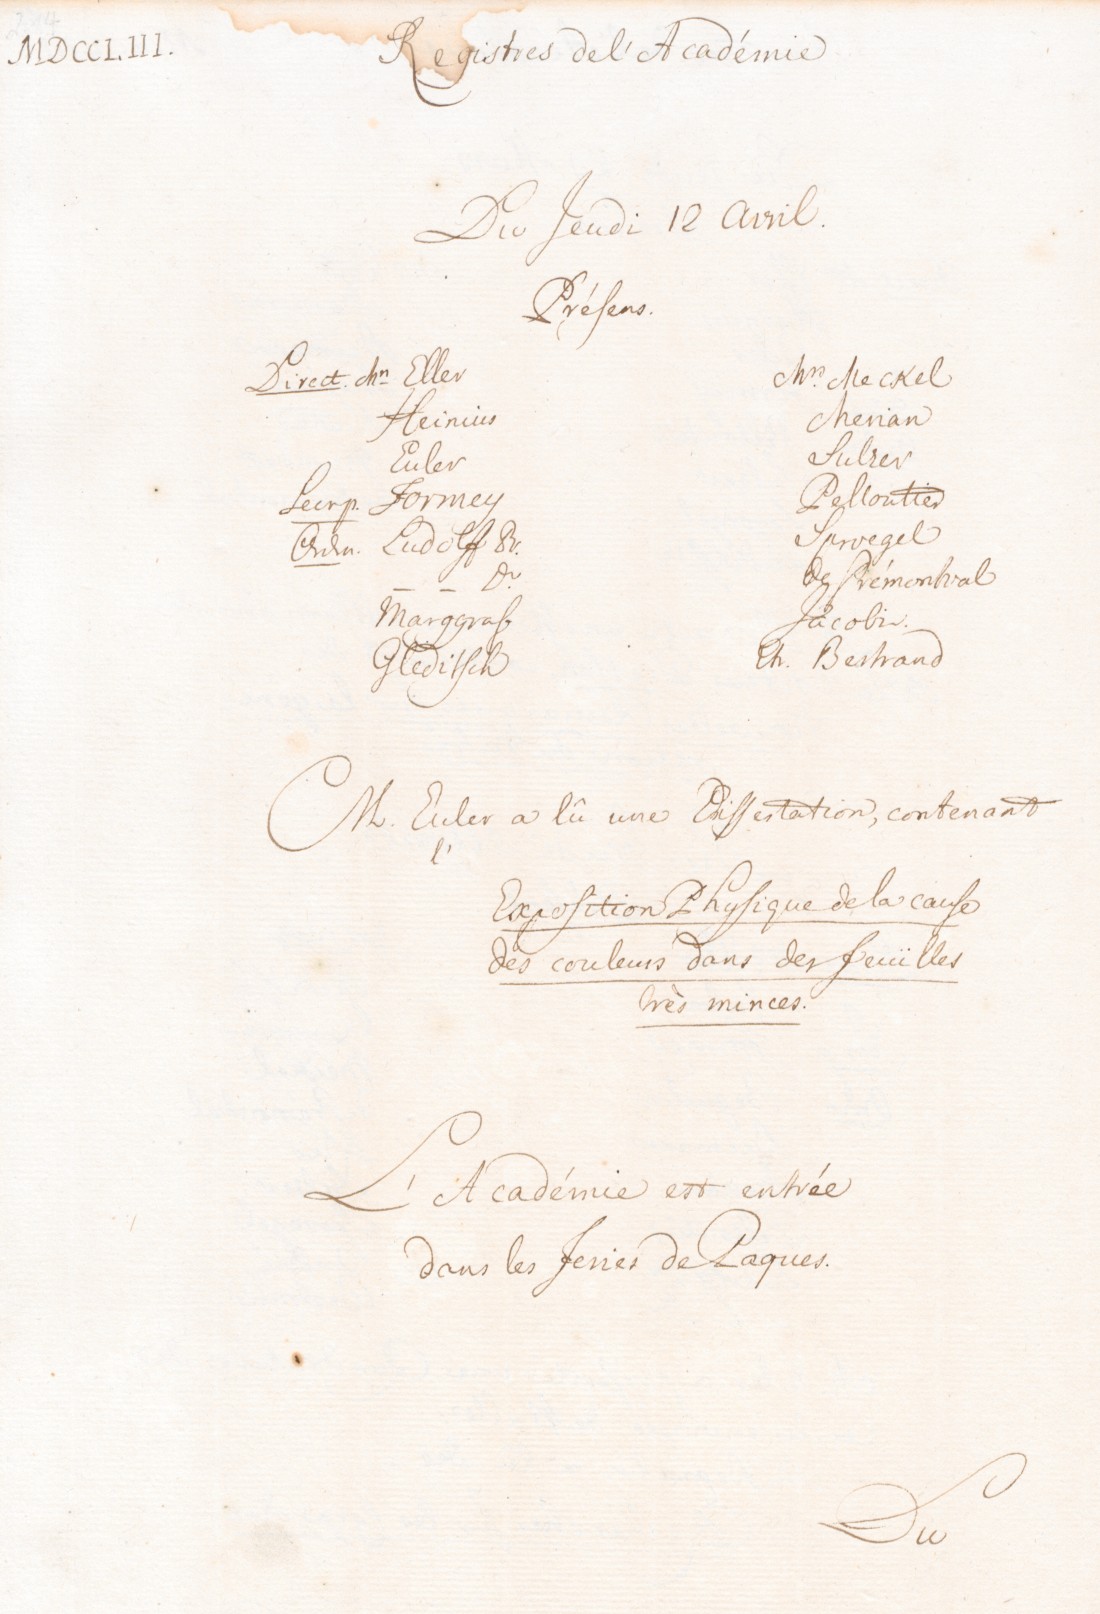 MDCCLIII.
Registres de l'Académie
Du Jeudi 12 Avril.
Présens.
Direct. Mrs Eller
Heinius
Euler
Secr. p. Formey
Ordin. Ludolff Pr.
— — Dr
Marggraf
Gleditsch
Mrs Meckel
Merian
Sulzer
Pelloutier
Sproegel
de Prémontval
Jacobi.
Ch. Bertrand
M. Euler a lû une Dissertation, contenant
l'
Exposition Physique de la cause
des couleurs dans des feuïlles
très minces.
L'Académie est entrée
dans les feries de Paques.
Du